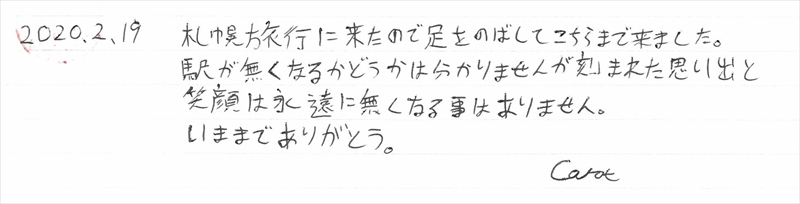 2020.2.19 札幌旅行に来たので足をのばしてこちらまで来ました。
駅が無くなるかどうかは分かりませんが刻まれた思い出と
笑顔は永遠に無くなる事はありません。
いままでありがとう。